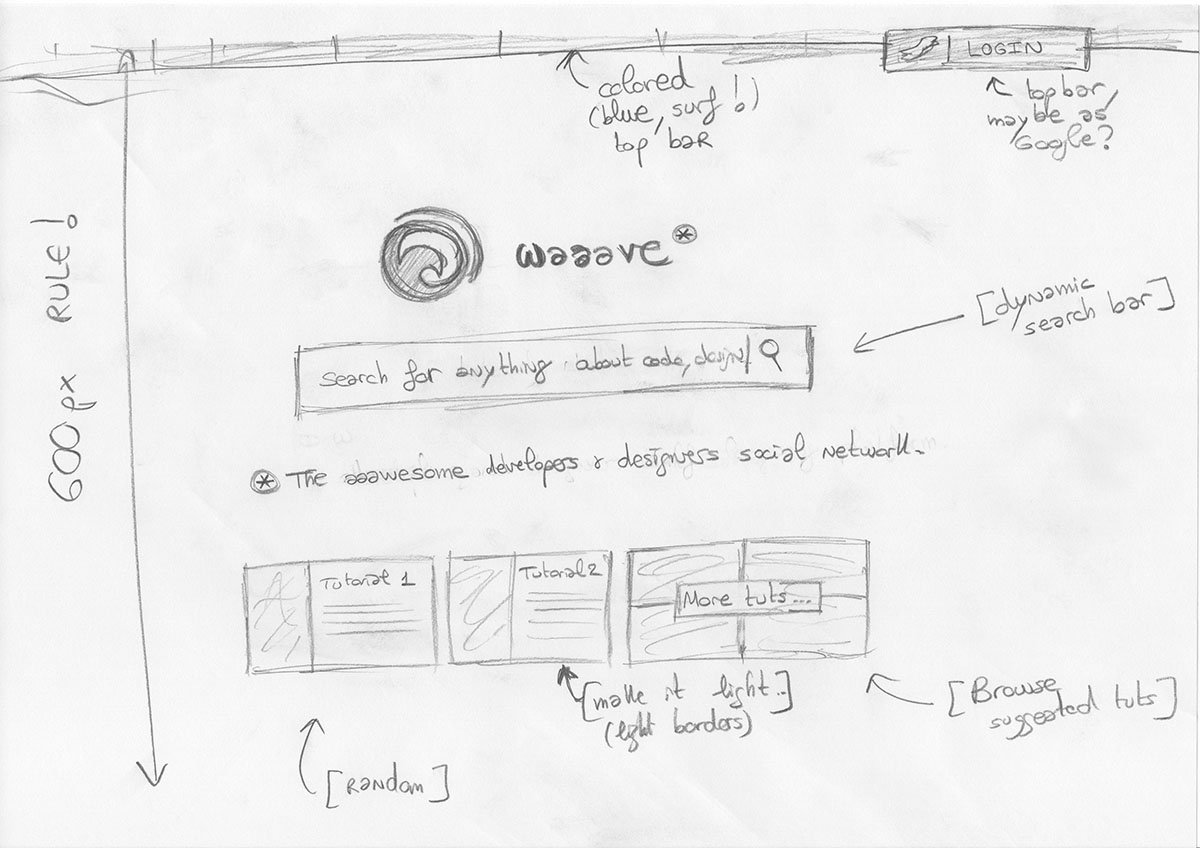 LOGIN
colored
(blue, surf!)
top bar
top bar,
maybe as
Google?
600px RULE!
waaave*
[dynamic
search bar]
Search for anything about code, design
* The aaawesome developers & designers social network.
Tutorial 1
Tutorial 2
More tuts...
[make it light..]
(light borders)
[Browse
suggested tuts]
[Random]